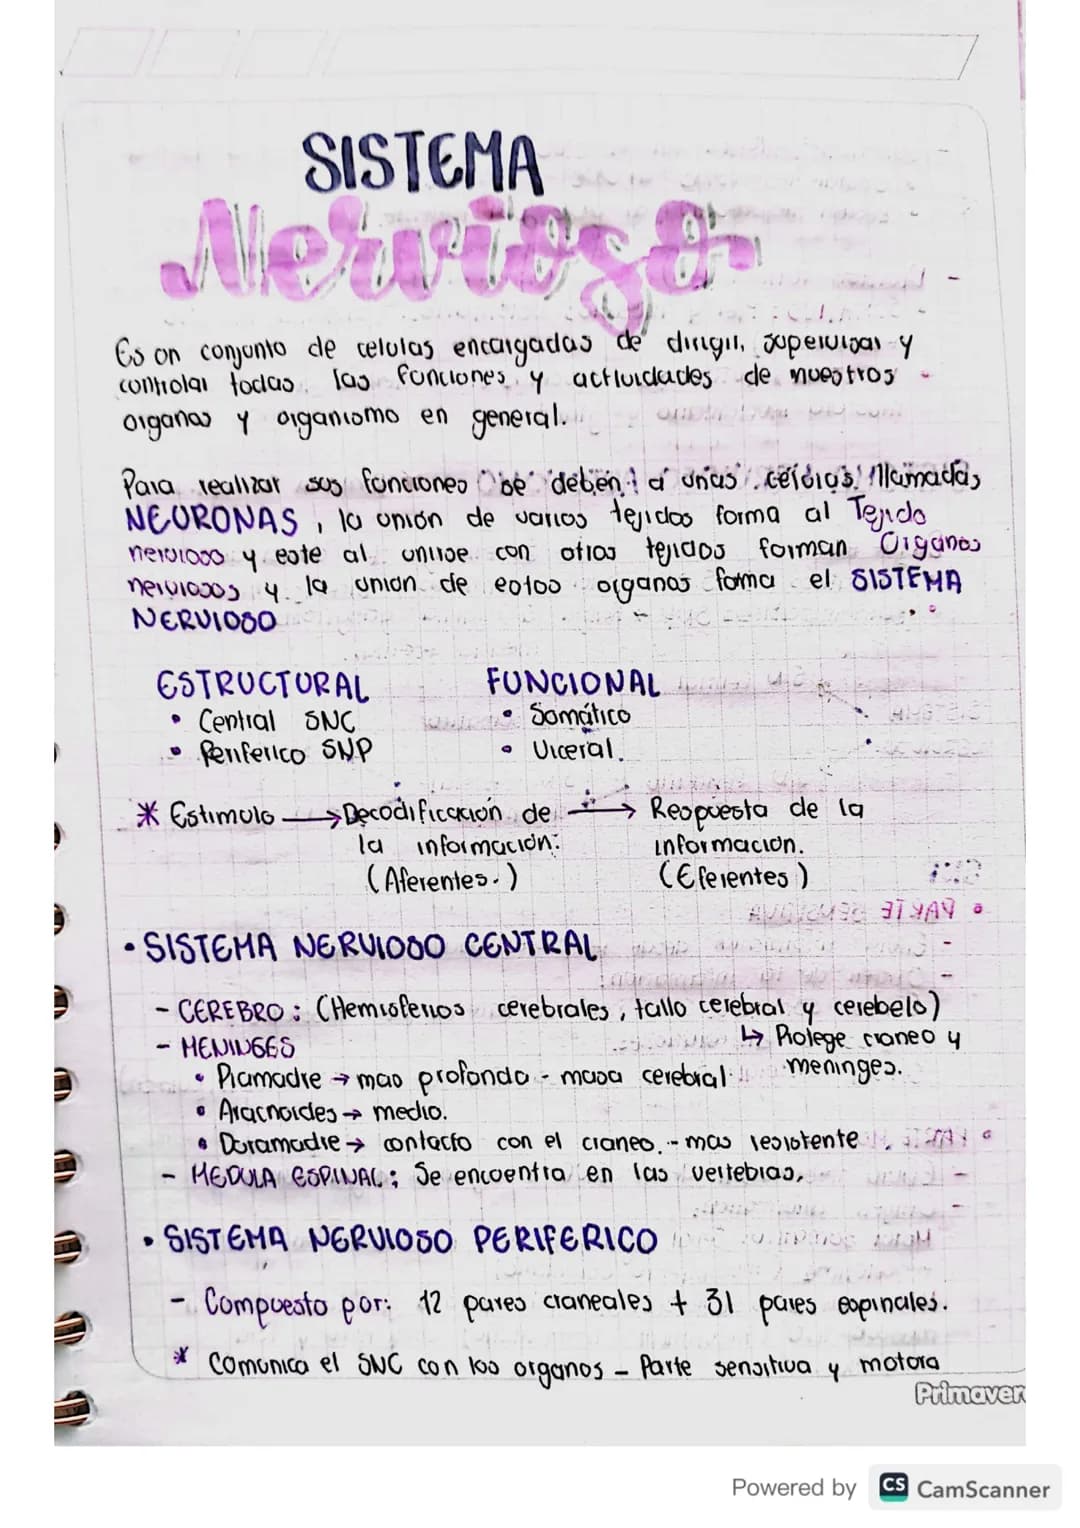 SISTEMA
Nervioso
Es un conjunto de celulas encargadas de dirigir, supervisar y
controlar todas las funciones y actividades de nuestros
organos y organismo en general.
Para realizar sus funciones se deben a unas celulas llamadas
NEURONAS, la unión de varios tejidos forma al Tejido
nervioso y este al unirse con otros tejidos forman Organos
nerviosos y la union de estos organos forma el SISTEMA
NERVIOSO
ESTRUCTURAL FUNCIONAL
• Central SNC • Somático
• Periferico SNP • Viceral.
* Estimulo → Decodificación de → Respuesta de la
la información: informacion.
(Aferentes.) (Eferentes)
• SISTEMA NERVIOSO CENTRAL
- CEREBRO: (Hemisferios cerebrales, tallo cerebral y cerebelo)
- MENINGES ↳ Protege craneo y
• Piamadre → mas profunda - masa cerebral meninges.
• Aracnoides → medio.
• Duramadre → contacto con el craneo. - mas resistente
- MEDULA ESPINAL: Se encuentra en las vertebras.
• SISTEMA NERVIOSO PERIFERICO
- Compuesto por: 12 pares craneales + 31 pares espinales.
* Comunica el SNC con los organos - Parte sensitiva y motora
Primaver
Powered by CS CamScanner